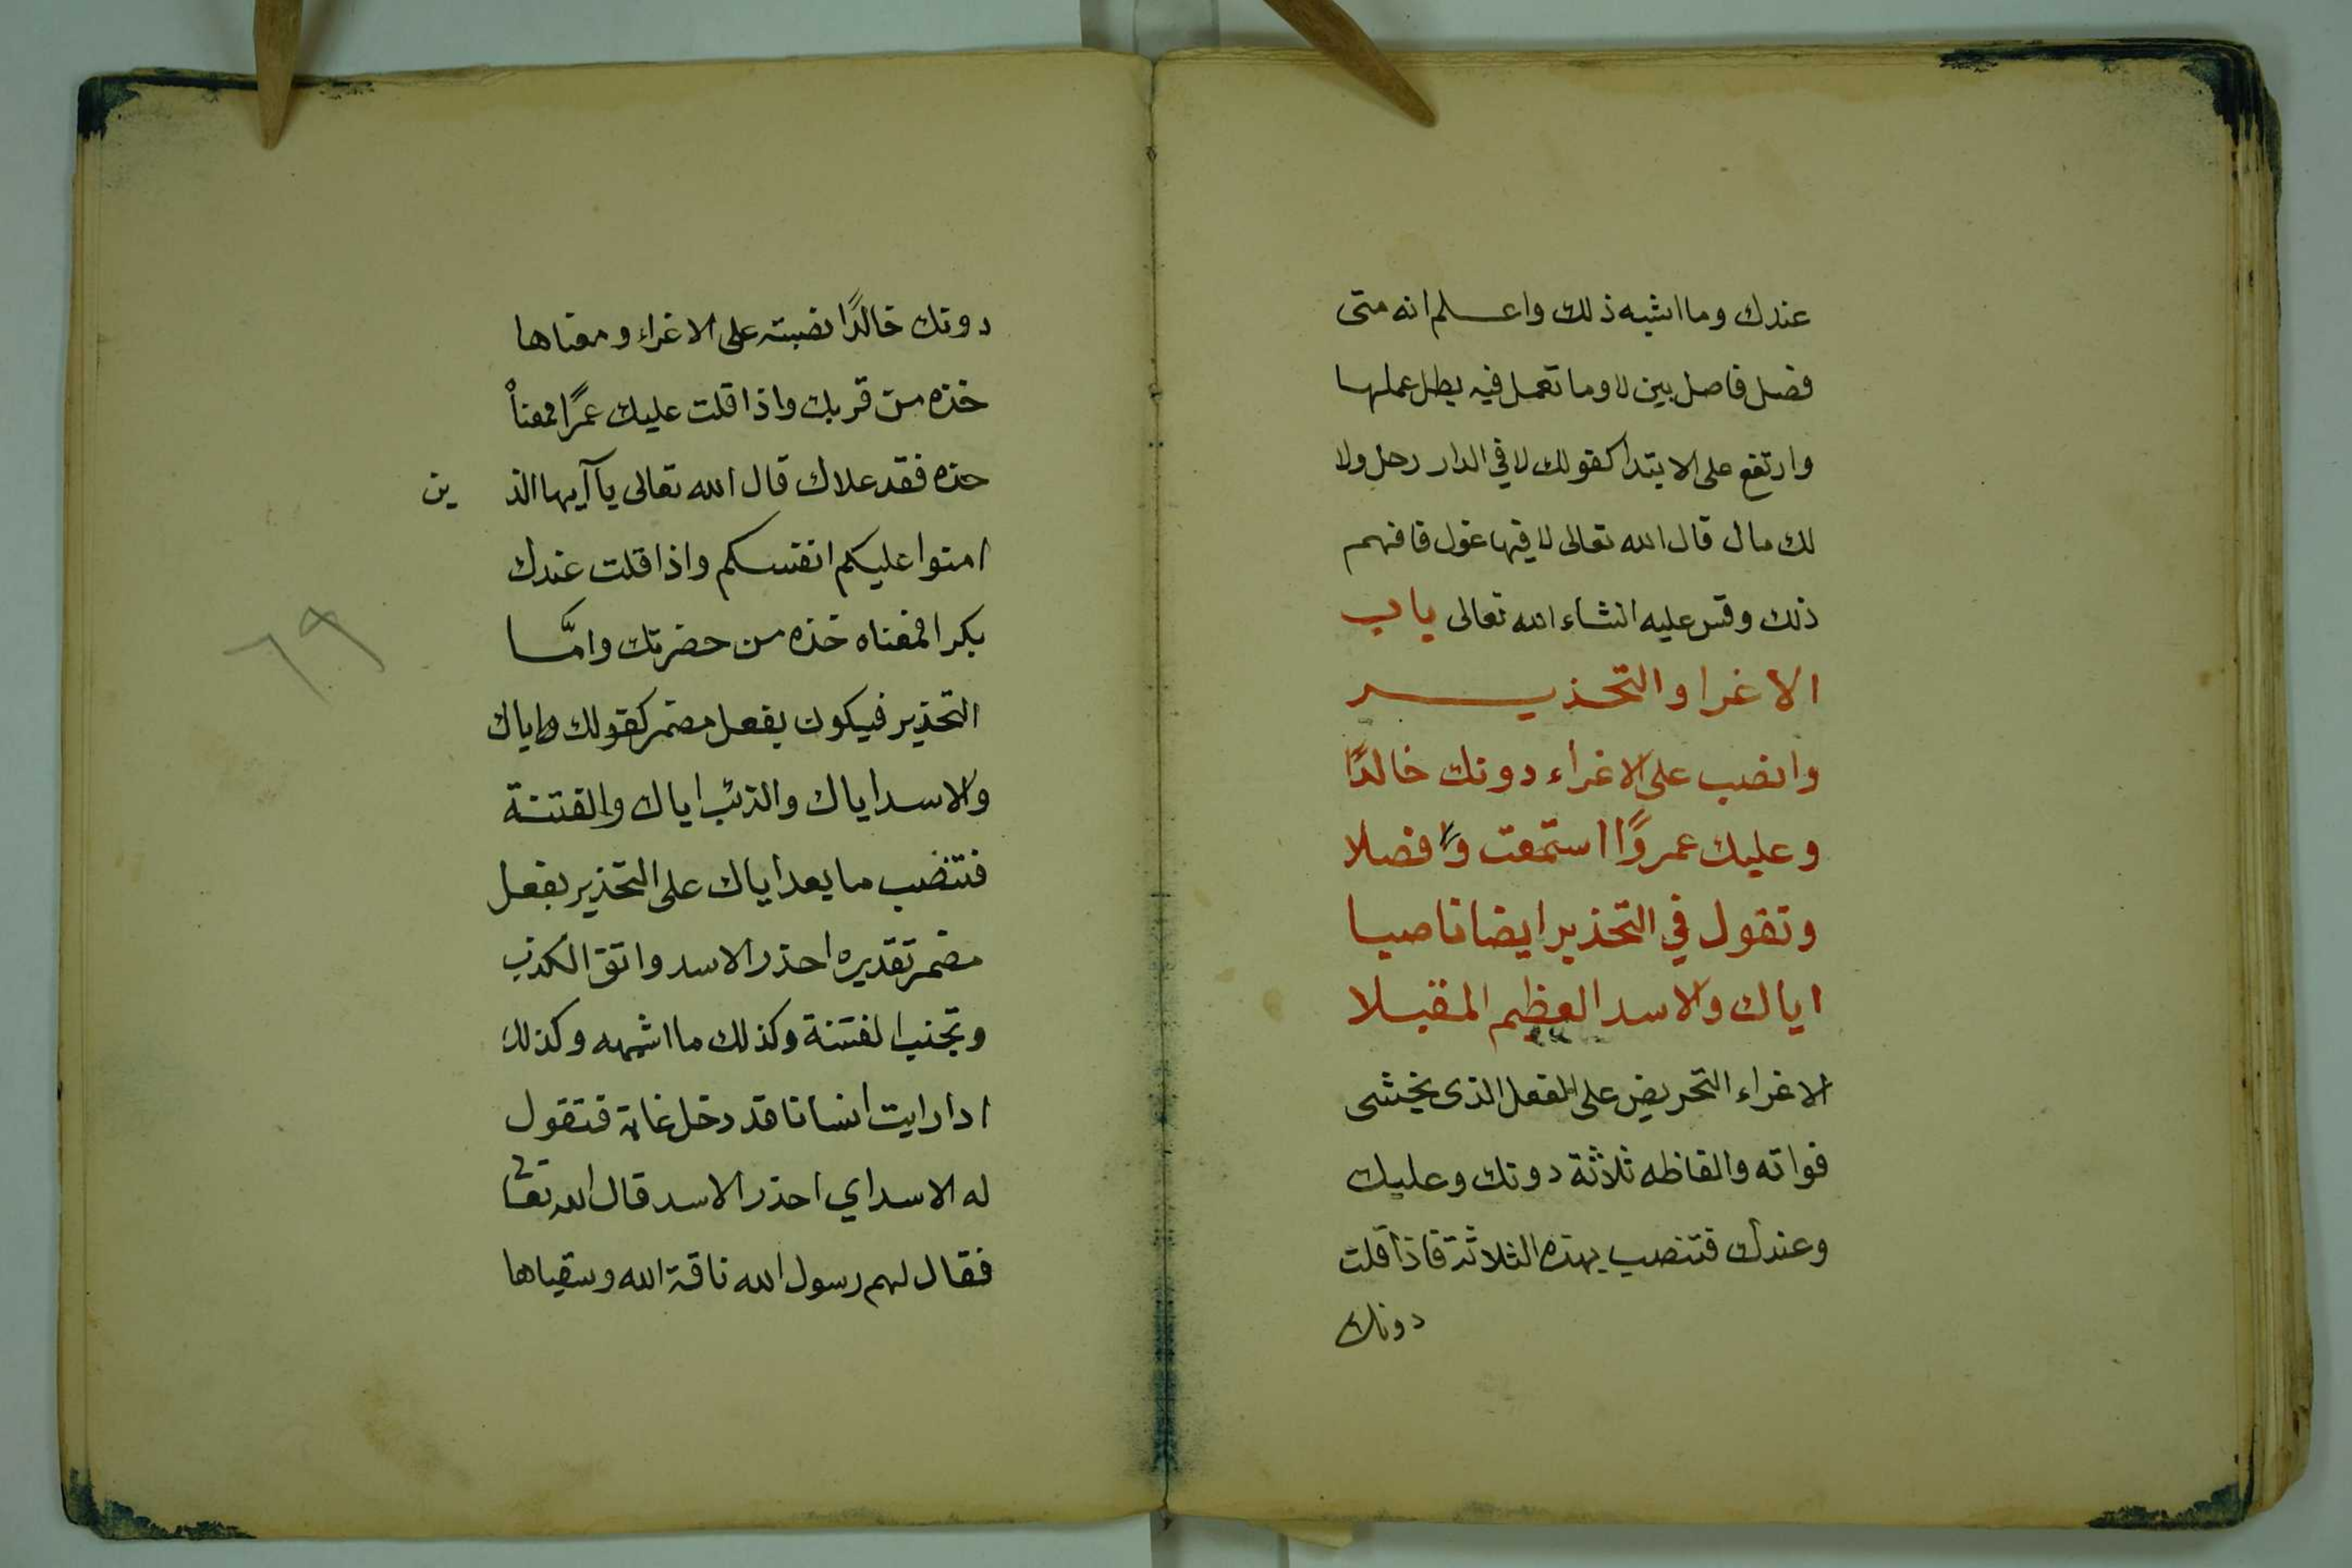 عندك وما اشبه ذلك واعلم انه متى
فصل فاصل بين لا وما تعمل فيه بطل عملها
وارتفع على الابتدا كقولك لا في الدار رجل ولا
لك مال قال الله تعالى لا فيها غول فافهم
ذلك وقس عليه انشاء الله تعالى باب
الاغرا والتحذير
وانصب على الاغراء دونك خالدًا
وعليك عمروًا استمعت وافضلا
وتقول في التحذير ايضا ناصبا
اياك والاسد العظيم المقبلا
الاغراء التحريض على الفعل الذى يخشى
فواته والفاظه ثلاثة دونك وعليك
وعندك فتنصب بهذه الثلاثة فاذا قلت
دونك
دونك خالدًا نصبته على الاغراء ومعناها
خذه من قربك واذا قلت عليك عمرًا فمعناه
خذه فقد علاك قال الله تعالى يا آيها الذين
امنوا عليكم انفسكم واذا قلت عندك
بكرا فمعناه خذه من حضرتك وامَّا
التحذير فيكون بفعل مضمر كقولك اياك
والاسد اياك والذئب اياك والفتنة
فتنصب ما بعد اياك على التحذير بفعل
مضمر تقديره احذر الاسد واتق الكذب
وتجنب الفتنة وكذلك ما اشبهه وكذلك
اذا رايت انسانا قد دخل غابة فتقول
له الاسد اي احذر الاسد قال الله تعا
فقال لهم رسول الله ناقة الله وسقياها
٦٩